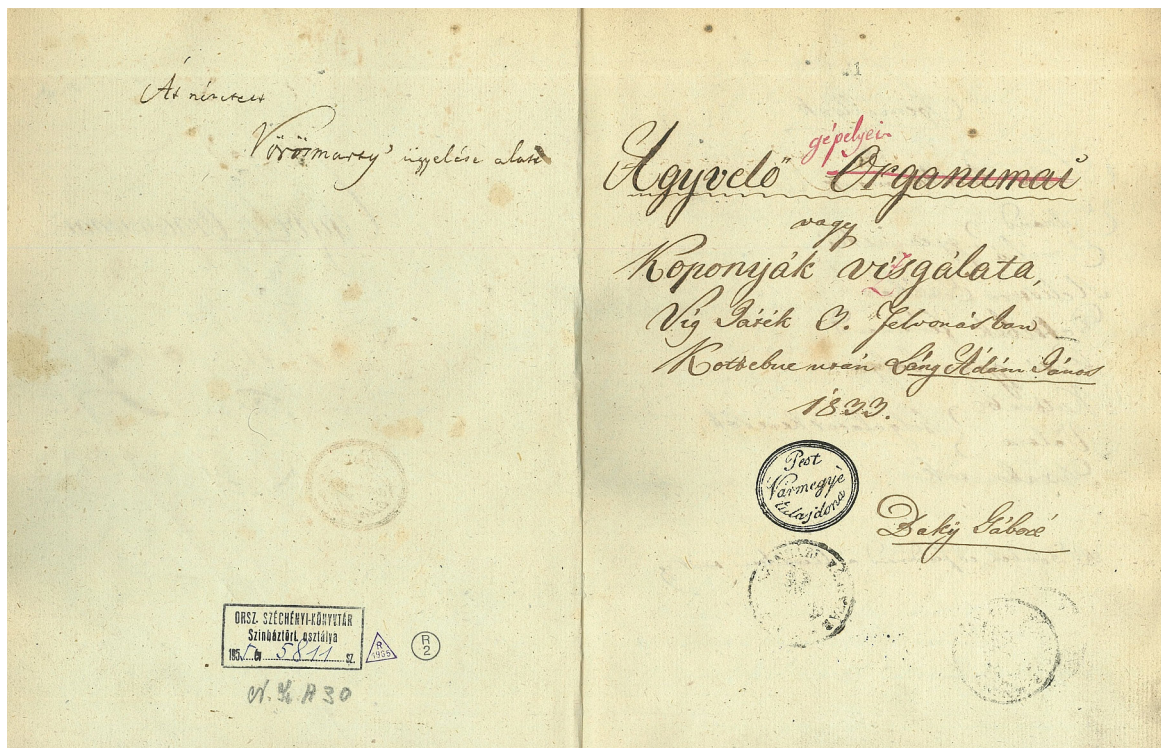 Át nézetett
Vörösmarty' ügyelése alatt
ORSZ. SZÉCHÉNYI-KÖNYVTÁR
Színháztört. osztálya
195 5. év 5811 sz.
R
1955
R
2
N. Sz. A 30
1
gépelyei
Agyvelő" Organumai
vagy
Koponyák vizsgálata,
Víg Játék 3. felvonásban
Kotzebue után Láng Ádám János
1833.
Pest
Vármegye
tulajdona
Baky Gáboré